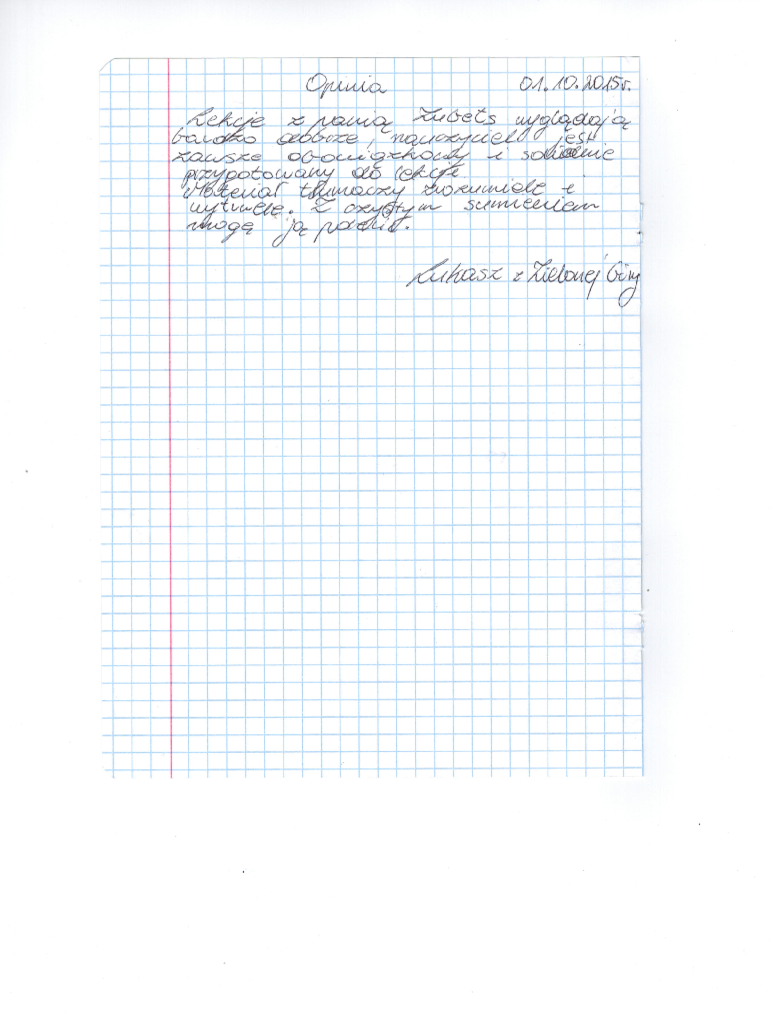 Opinia 01.10.2015r.
Lekcje z panią Zubets wyglądają
bardzo dobrze, nauczyciel jest
zawsze obowiązkowy i solidnie
przygotowany do lekcji.
Materiał tłumaczy zrozumiale i
wytrwale. Z czystym sumieniem
mogę ją polecić.
Łukasz z Zielonej Góry